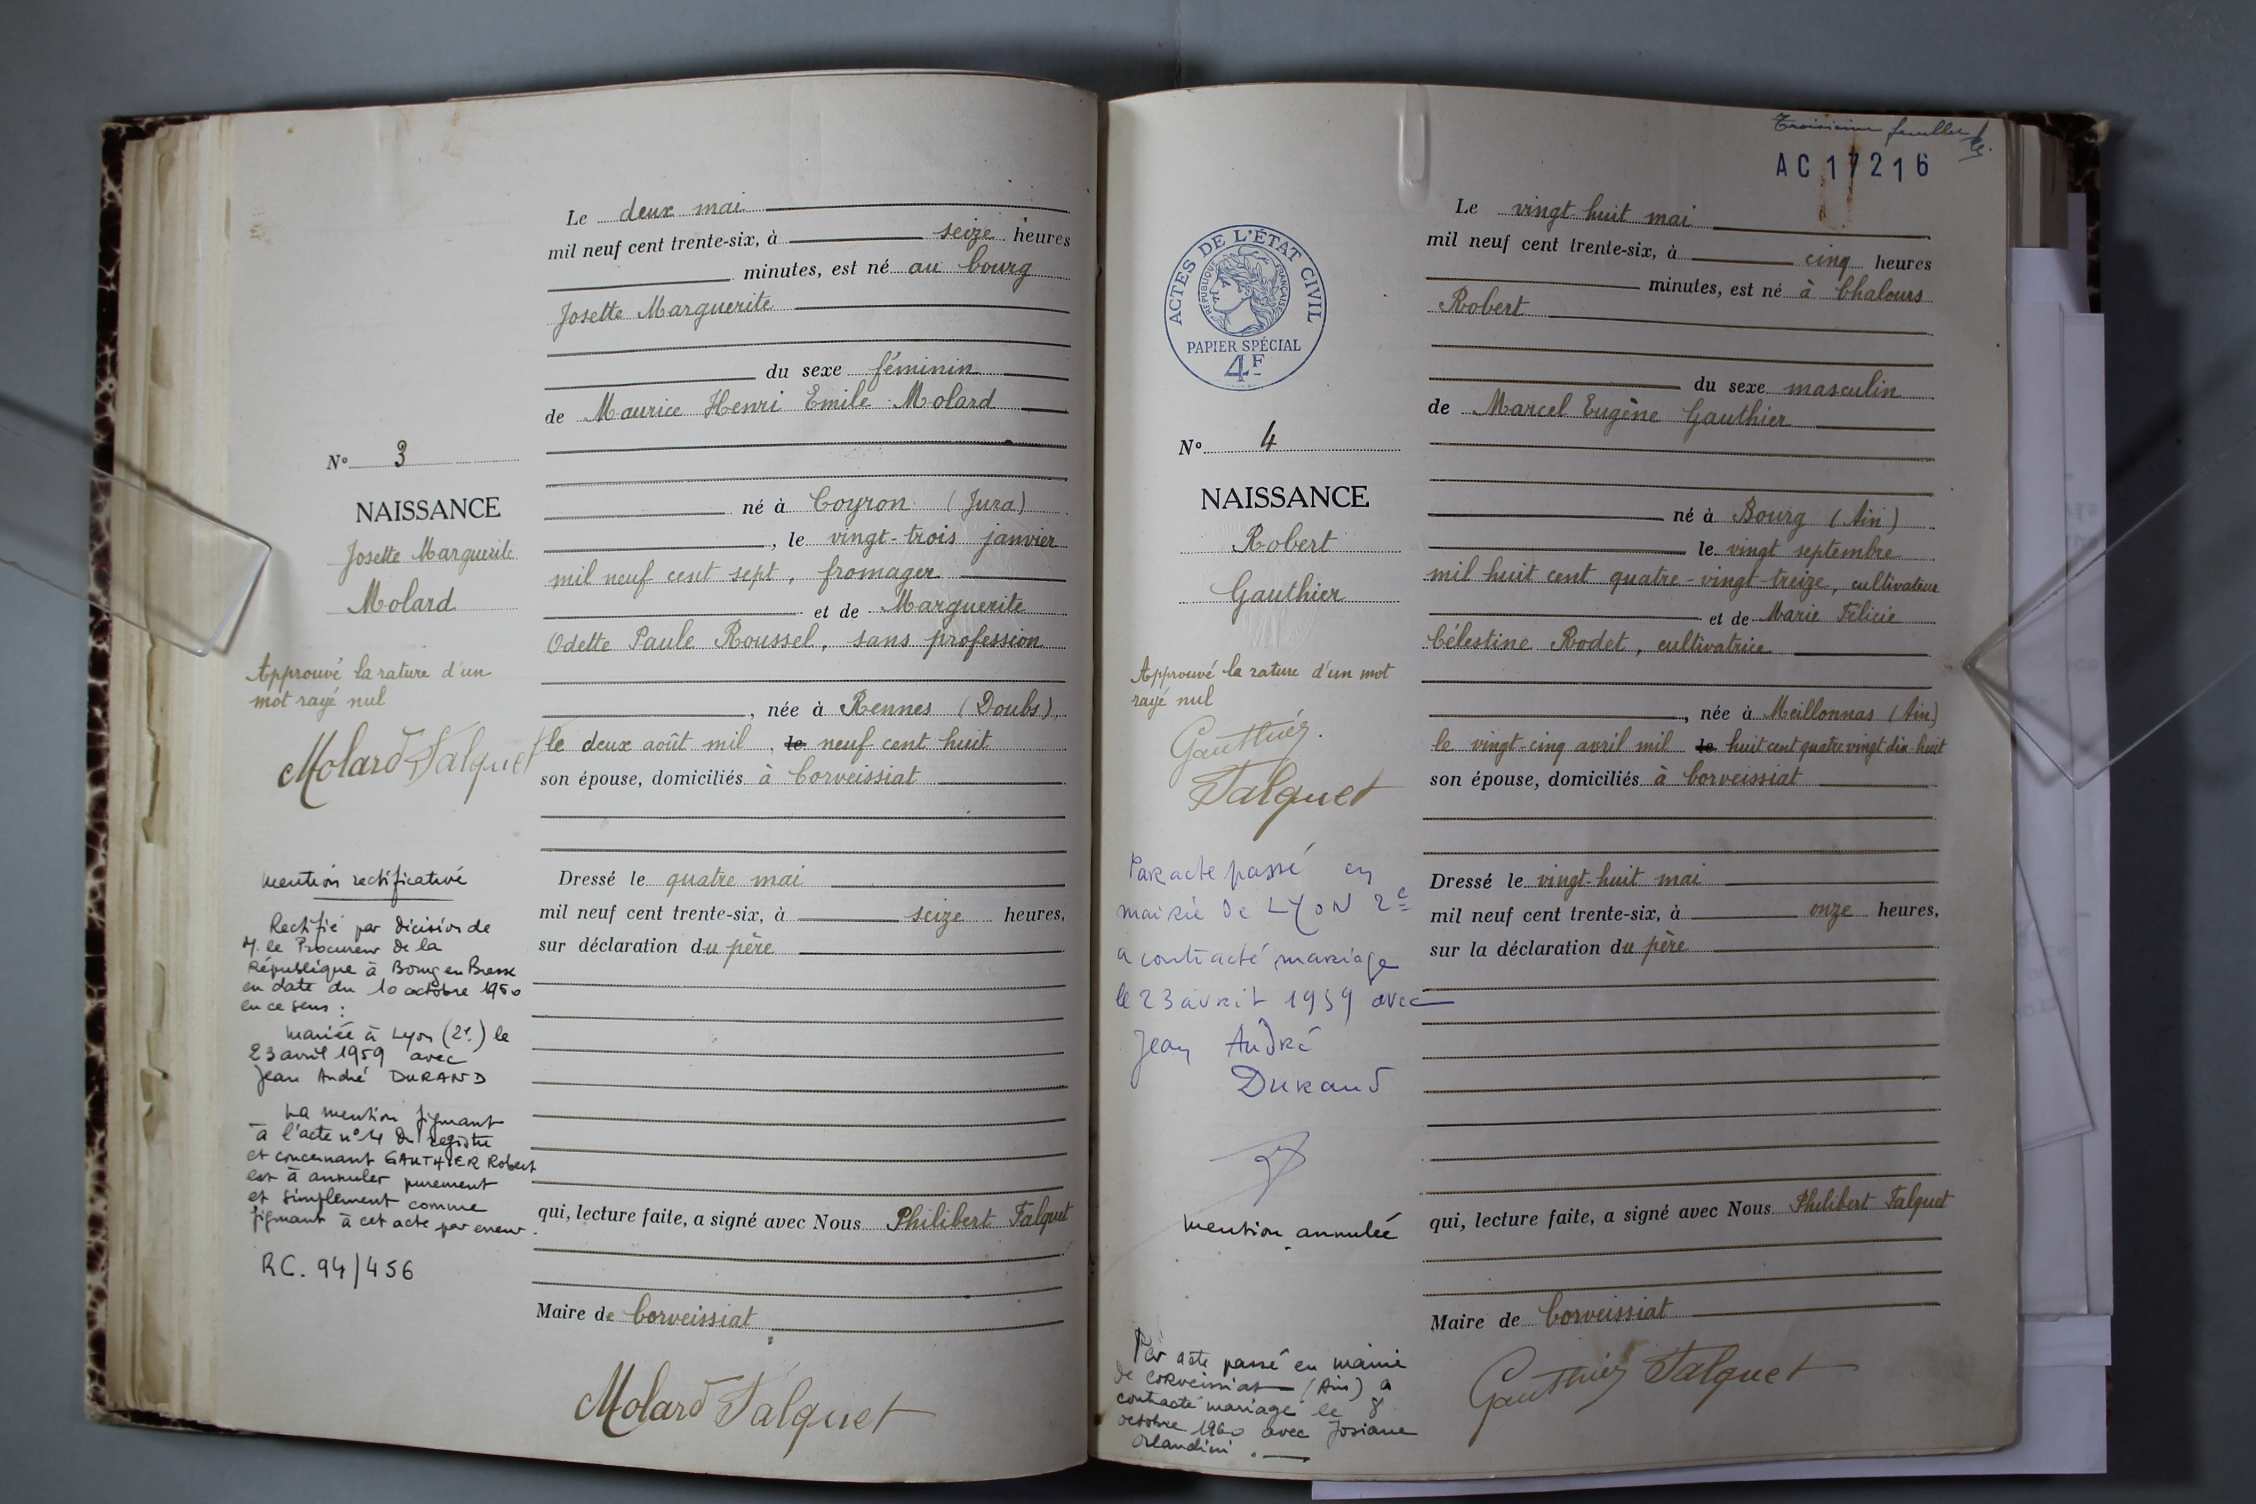 Le deux mai
mil neuf cent trente-six, à seize heures
minutes, est né au bourg
Josette Marguerite
du sexe féminin
de Maurice Henri Emile Molard
né à Coyron (Jura)
, le vingt-trois janvier
mil neuf cent sept, fromager
et de Marguerite
Odette Paule Roussel, sans profession
, née à Rennes (Doubs),
le deux août mil, le neuf cent huit
son épouse, domiciliés à Corveissiat
Dressé le quatre mai
mil neuf cent trente-six, à seize heures,
sur déclaration du père
qui, lecture faite, a signé avec Nous Philibert Falquet
Maire de Corveissiat
Molard Falquet
N° 3
NAISSANCE
Josette Marguerite
Molard
Approuvé la rature d'un
mot rayé nul
Molard Falquet
Mention rectificative
Rectifié par décision de
M. le Procureur de la
République à Bourg en Bresse
en date du 10 octobre 1960
en ce sens :
Mariée à Lyon (2e.) le
23 avril 1959 avec
Jean André DURAND
La mention figurant
à l'acte n° 4 du registre
et concernant GAUTHIER Robert
est à annuler purement
et simplement comme
figurant à cet acte par erreur.
RC. 94/456
Troisième feuillet
AC 17216
ACTES DE L'ÉTAT CIVIL
RÉPUBLIQUE FRANÇAISE
PAPIER SPÉCIAL
4F
N° 4
NAISSANCE
Robert
Gauthier
Approuvé la rature d'un mot
rayé nul
Gauthier.
Falquet
Par acte passé en
mairie de LYON 2e
a contracté mariage
le 23 avril 1959 avec
Jean André
Durand
mention annulée
Par acte passé en mairie
de CORVEISSIAT (Ain) a
contracté mariage le 8
octobre 1960 avec Josiane
Orlandini.
Le vingt-huit mai
mil neuf cent trente-six, à cinq heures
minutes, est né à Chalours
Robert
du sexe masculin
de Marcel Eugène Gauthier
né à Bourg (Ain)
le vingt septembre
mil huit cent quatre-vingt-treize, cultivateur
et de Marie Félicie
Célestine Rodet, cultivatrice
, née à Meillonnas (Ain)
le vingt-cinq avril mil le huit cent quatre vingt dix-huit
son épouse, domiciliés à Corveissiat
Dressé le vingt-huit mai
mil neuf cent trente-six, à onze heures,
sur la déclaration du père
qui, lecture faite, a signé avec Nous Philibert Falquet
Maire de Corveissiat
Gauthier Falquet